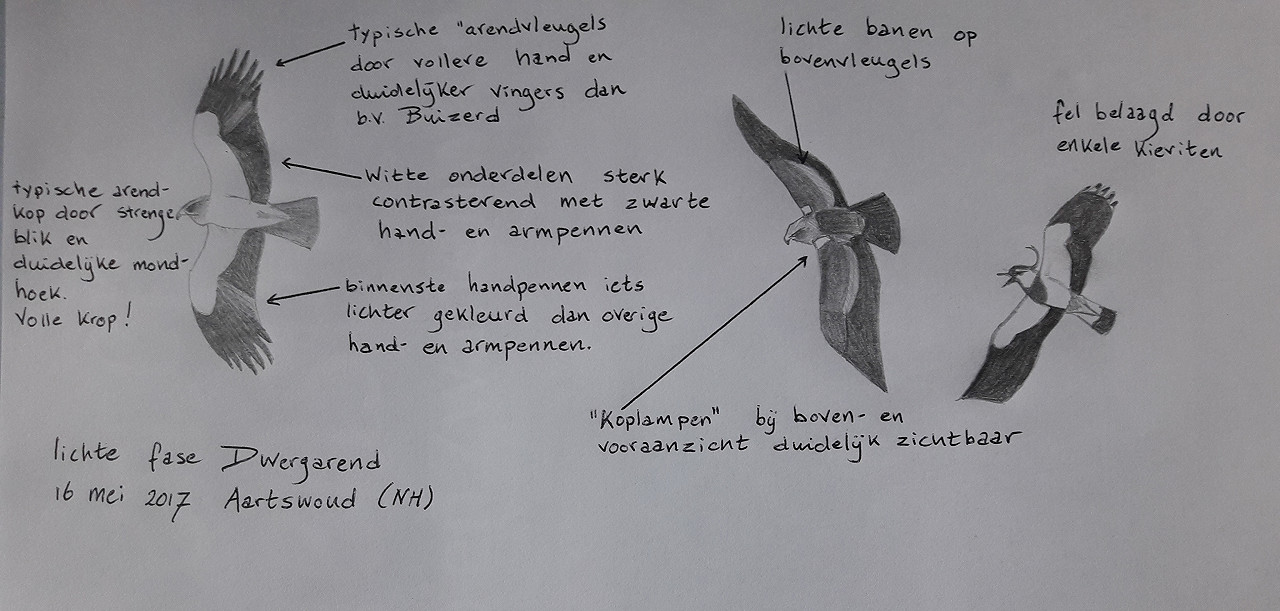 typische "arendvleugels
door vollere hand en
duidelijker vingers dan
b.v. Buizerd
Witte onderdelen sterk
contrasterend met zwarte
hand- en armpennen
typische arend-
kop door strenge
blik en
duidelijke mond-
hoek.
Volle krop!
binnenste handpennen iets
lichter gekleurd dan overige
hand- en armpennen.
lichte banen op
bovenvleugels
fel belaagd door
enkele kieviten
"Koplampen" bij boven- en
vooraanzicht duidelijk zichtbaar
lichte fase Dwergarend
16 mei 2017 Aartswoud (NH)